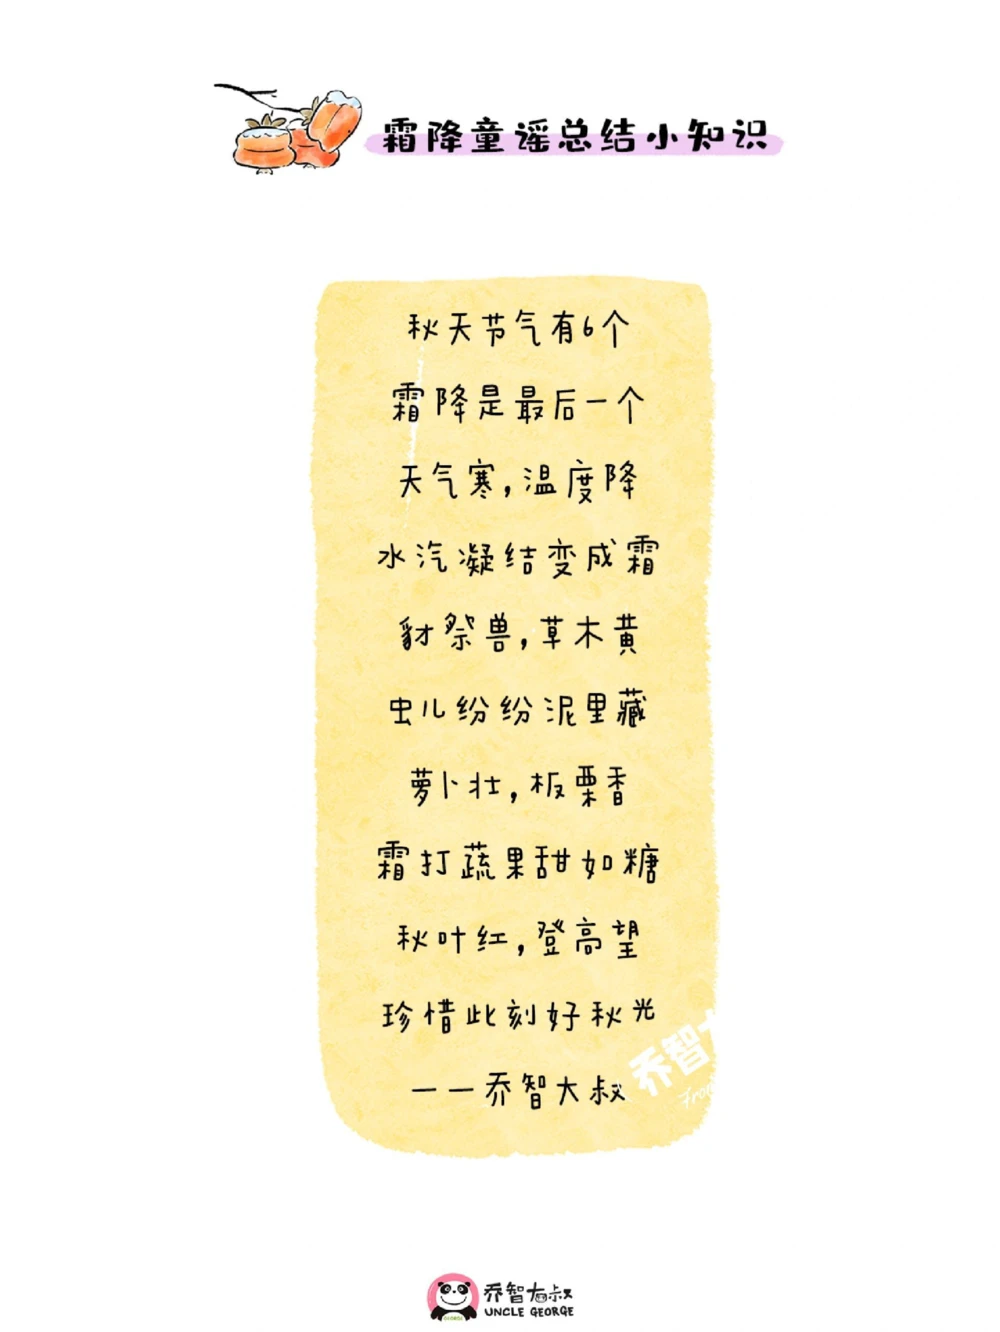 霜降童谣总结小知识
秋天节气有6个
霜降是最后一个
天气寒，温度降
水汽凝结变成霜
豺祭兽，草木黄
虫儿纷纷泥里藏
萝卜壮，板栗香
霜打蔬果甜如糖
秋叶红，登高望
珍惜此刻好秋光
——乔智大叔
乔智大
From
乔智大叔
UNCLE GEORGE
GEORGE